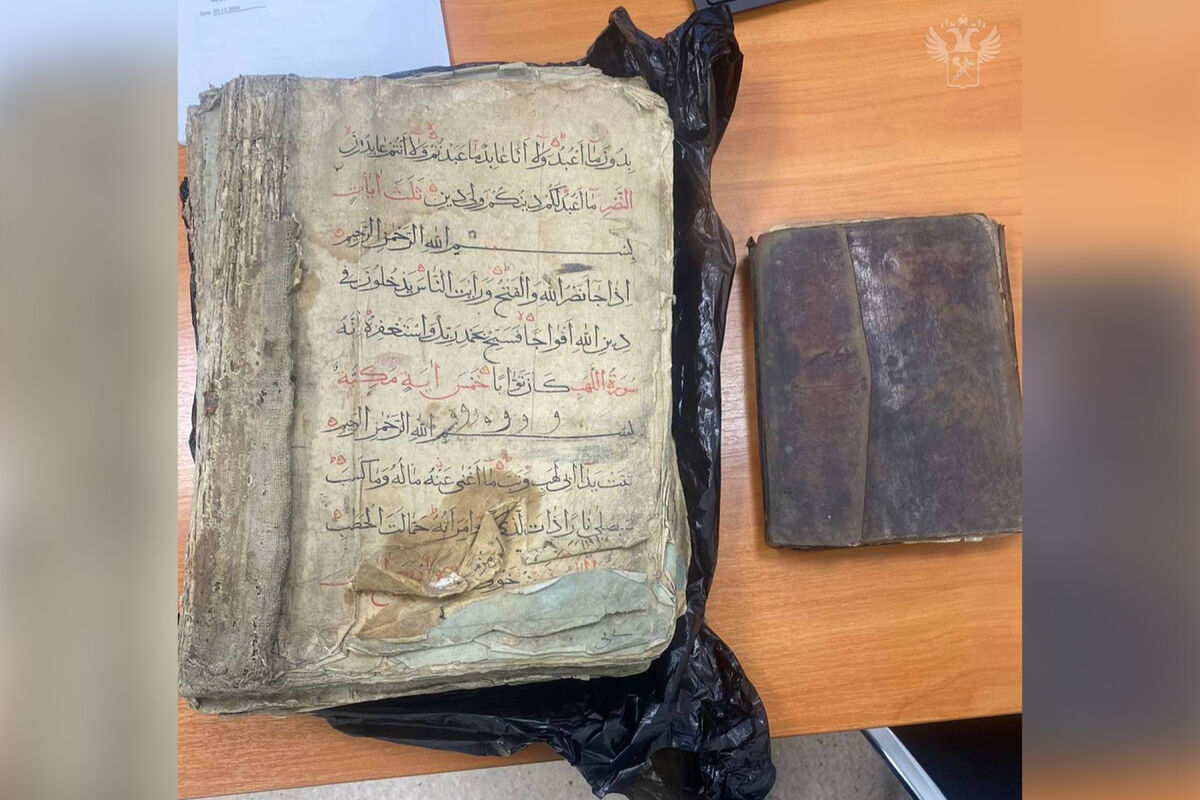 Дата 02.12.2024
بدون ما اعبد ولا انا عابد ما عبدتم ولا انتم عابدون
النصر ما اعبد لكم دينكم ولي دين ثلث ايات
بسم الله الرحمن الرحيم
اذا جا نصر الله والفتح ورايت الناس يدخلون في
دين الله افواجا فسبح بحمد ربك واستغفره انه
سورة اللهب كان توابا خمس اية مكية
بسم الله الرحمن الرحيم
تبت يدا ابى لهب وتب ما اغنى عنه ماله وما كسب
سيصلى نارا ذات لهب وامراته حمالت الحطب